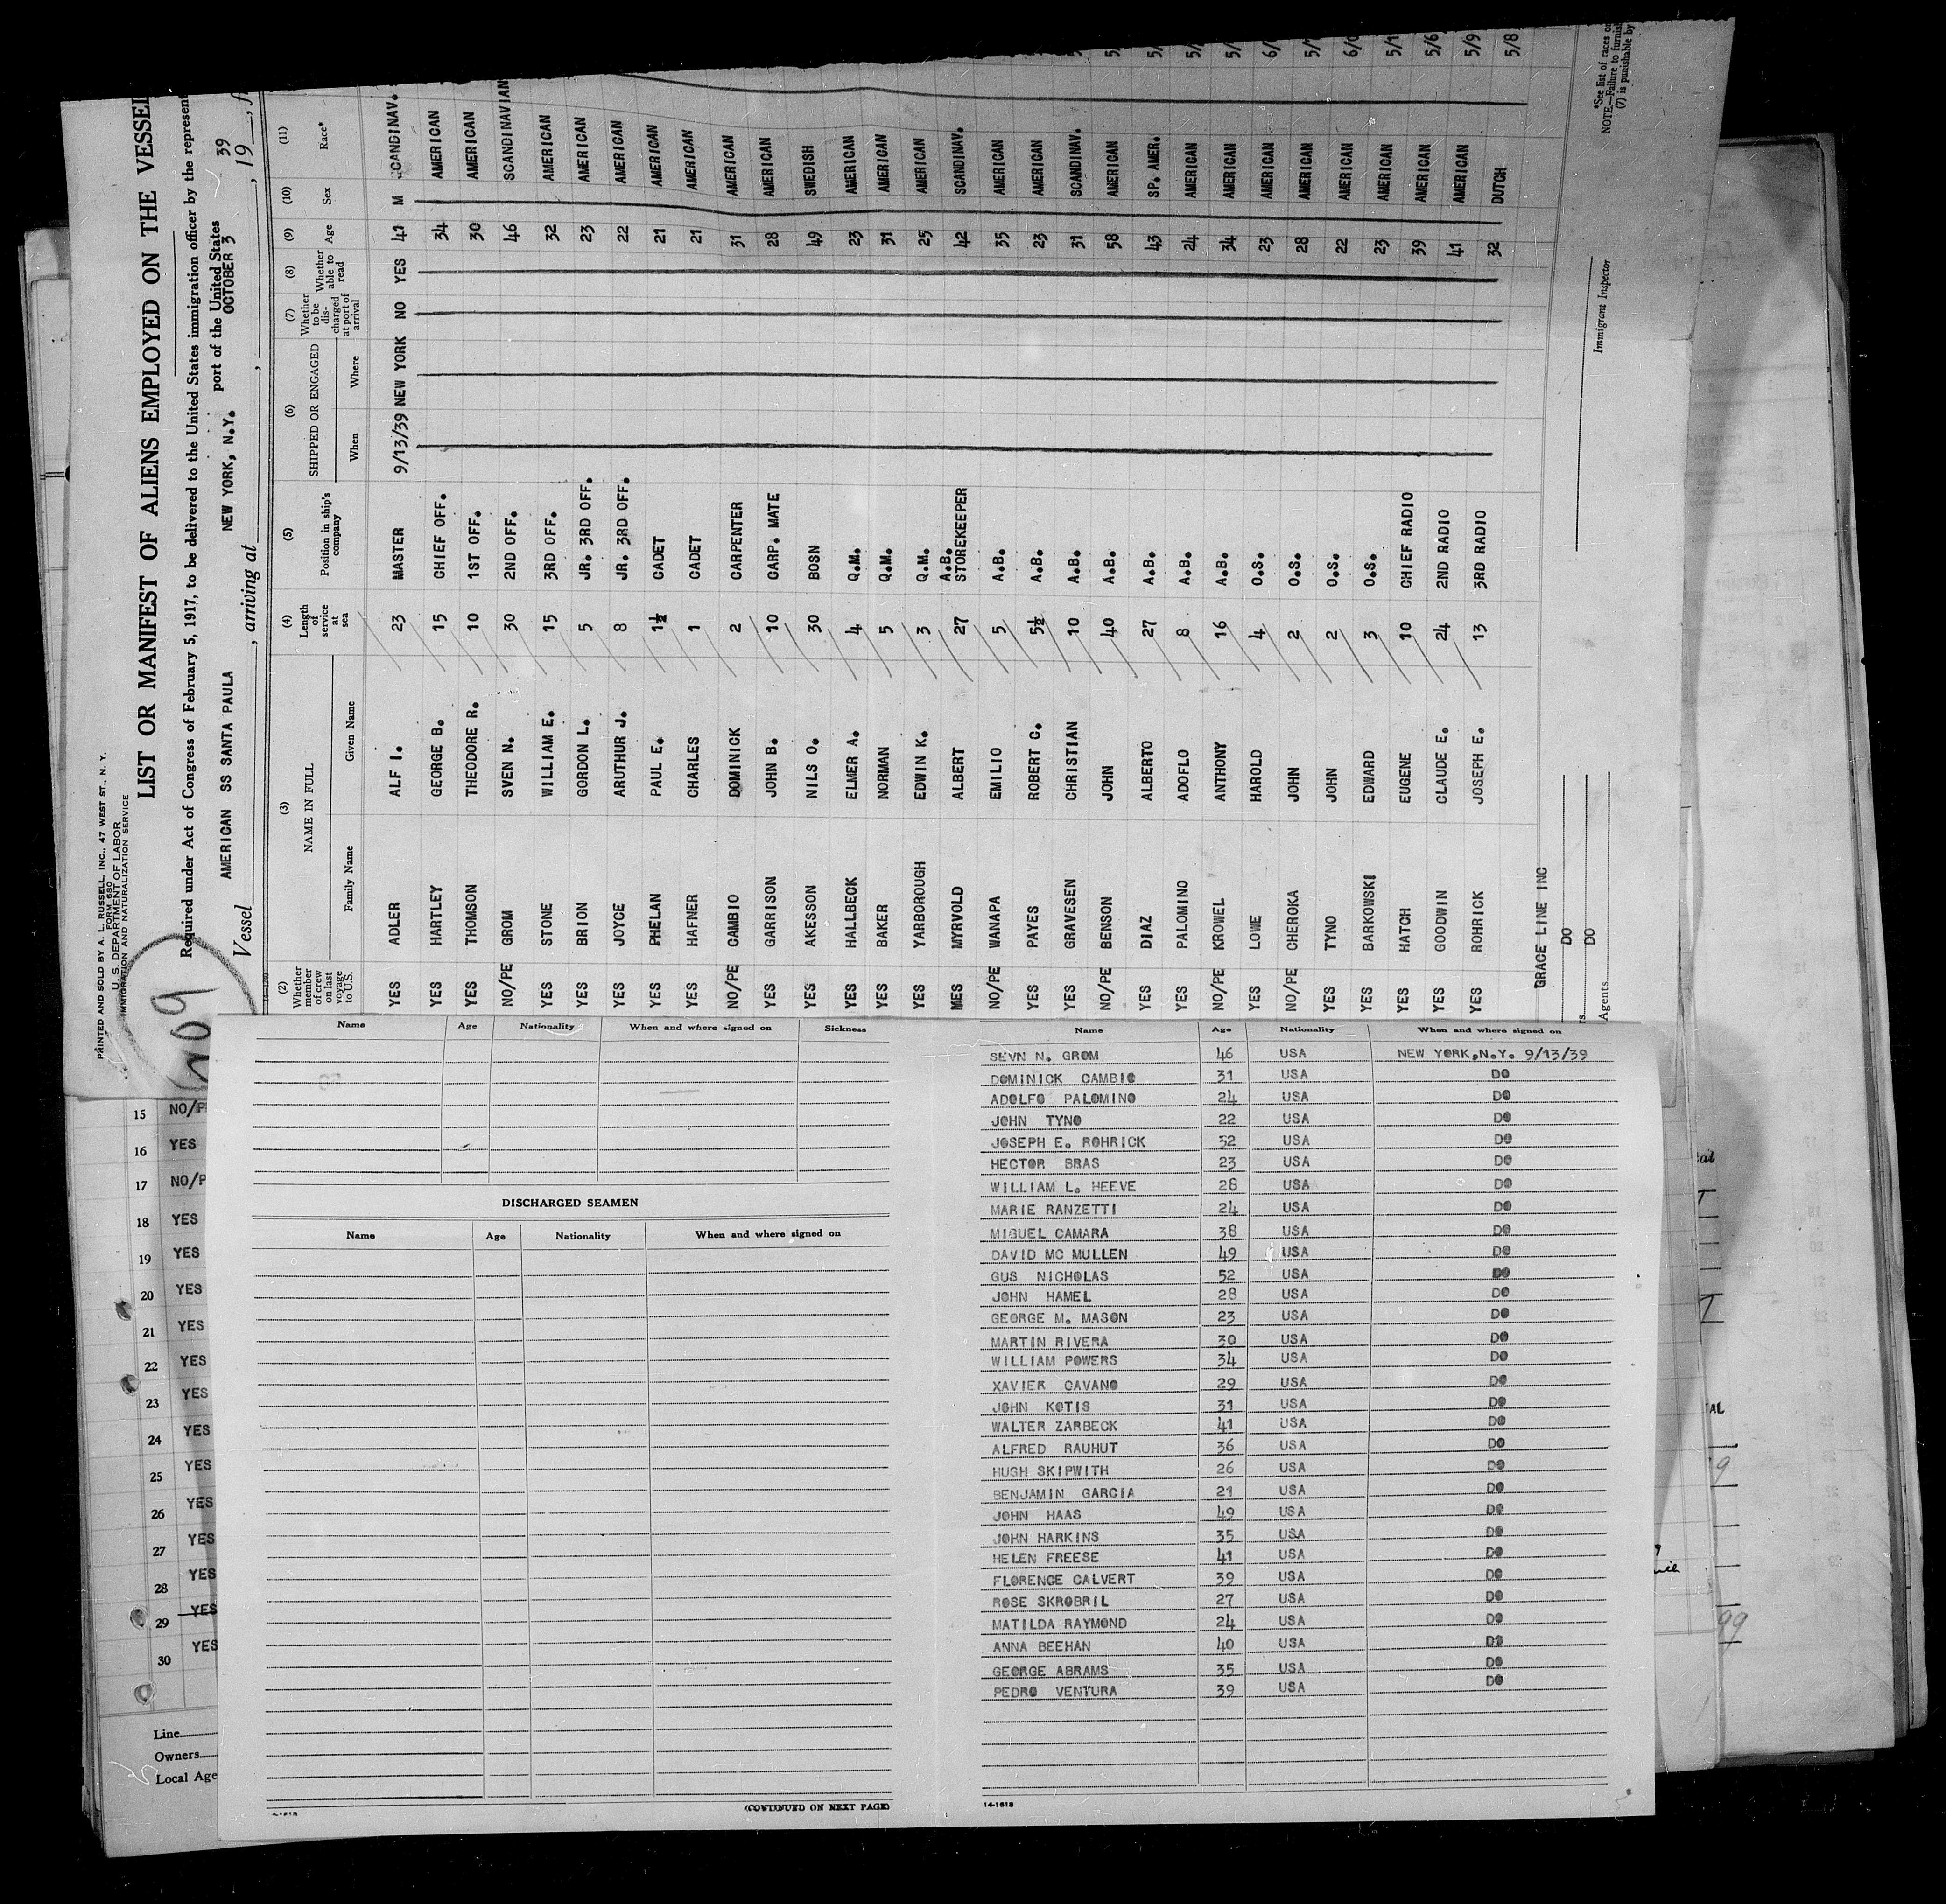 PRINTED AND SOLD BY A. L. RUSSELL, INC., 47 WEST ST., N. Y.
FORM 680
U. S. DEPARTMENT OF LABOR
IMMIGRATION AND NATURALIZATION SERVICE
LIST OR MANIFEST OF ALIENS EMPLOYED ON THE VESSEL
Required under Act of Congress of February 5, 1917, to be delivered to the United States immigration officer by the represent
Vessel AMERICAN SS SANTA PAULA, arriving at NEW YORK, N.Y. port of the United States OCTOBER 3, 1939, f
209
(2) Whether member of crew on last voyage to U.S.
(3) NAME IN FULL Family Name Given Name
(4) Length of service at sea
(5) Position in ship's company
(6) SHIPPED OR ENGAGED When Where
(7) Whether to be discharged at port of arrival
(8) Whether able to read
(9) Age
(10) Sex
(11) Race*
YES ADLER ALF I. 23 MASTER 9/13/39 NEW YORK NO YES 41 M SCANDINAV.
YES HARTLEY GEORGE B. 15 CHIEF OFF. 34 AMERICAN
YES THOMSON THEODORE R. 10 1ST OFF. 30 AMERICAN
NO/PE GROM SVEN N. 30 2ND OFF. 46 SCANDINAVIAN
YES STONE WILLIAM E. 15 3RD OFF. 32 AMERICAN
YES BRION GORDON L. 5 JR. 3RD OFF. 23 AMERICAN
YES JOYCE ARUTHUR J. 8 JR. 3RD OFF. 22 AMERICAN
YES PHELAN PAUL E. 1½ CADET 21 AMERICAN
YES HAFNER CHARLES 1 CADET 21 AMERICAN
NO/PE CAMBIO DOMINICK 2 CARPENTER 31 AMERICAN
YES GARRISON JOHN B. 10 CARP. MATE 28 AMERICAN
YES AKESSON NILS O. 30 BOSN 49 SWEDISH
YES HALLBECK ELMER A. 4 Q.M. 23 AMERICAN
YES BAKER NORMAN 5 Q.M. 31 AMERICAN
YES YARBOROUGH EDWIN K. 3 Q.M. 25 AMERICAN
MES MYRVOLD ALBERT 27 A.B. STOREKEEPER 42 SCANDINAV.
NO/PE WANAPA EMILIO 5 A.B. 35 AMERICAN
YES PAYES ROBERT C. 5½ A.B. 23 AMERICAN
YES GRAVESEN CHRISTIAN 10 A.B. 31 SCANDINAV.
NO/PE BENSON JOHN 40 A.B. 58 AMERICAN
YES DIAZ ALBERTO 27 A.B. 43 SP. AMER.
YES PALOMINO ADOFLO 8 A.B. 24 AMERICAN
NO/PE KROWEL ANTHONY 16 A.B. 34 AMERICAN
YES LOWE HAROLD 4 O.S. 23 AMERICAN
NO/PE CHEROKA JOHN 2 O.S. 28 AMERICAN
YES TYNO JOHN 2 O.S. 22 AMERICAN
YES BARKOWSKI EDWARD 3 O.S. 23 AMERICAN
YES HATCH EUGENE 10 CHIEF RADIO 39 AMERICAN
YES GOODWIN CLAUDE E. 24 2ND RADIO 41 AMERICAN
YES ROHRICK JOSEPH E. 13 3RD RADIO 32 DUTCH
GRACE LINE INC
DO
DO
Agents
Immigrant Inspector
*See list of races o
NOTE.—Failure to furnis
(7) is punishable by
15 NO/P
16 YES
17 NO/P
18 YES
19 YES
20 YES
21 YES
22 YES
23 YES
24 YES
25 YES
26 YES
27 YES
28 YES
29 YES
30 YES
Line
Owners
Local Age
Name Age Nationality When and where signed on Sickness
DISCHARGED SEAMEN
Name Age Nationality When and where signed on
(CONTINUED ON NEXT PAGE)
Name Age Nationality When and where signed on
SEVN N. GROM 46 USA NEW YORK,N.Y. 9/13/39
DOMINICK CAMBIO 31 USA DO
ADOLFO PALOMINO 24 USA DO
JOHN TYNO 22 USA DO
JOSEPH E. ROHRICK 32 USA DO
HECTOR BRAS 23 USA DO
WILLIAM L. HEEVE 28 USA DO
MARIE RANZETTI 24 USA DO
MIGUEL CAMARA 38 USA DO
DAVID MC MULLEN 49 USA DO
GUS NICHOLAS 52 USA DO
JOHN HAMEL 28 USA DO
GEORGE M. MASON 23 USA DO
MARTIN RIVERA 30 USA DO
WILLIAM POWERS 34 USA DO
XAVIER CAVANO 29 USA DO
JOHN KOTIS 31 USA DO
WALTER ZARBECK 41 USA DO
ALFRED RAUHUT 36 USA DO
HUGH SKIPWITH 26 USA DO
BENJAMIN GARCIA 21 USA DO
JOHN HAAS 49 USA DO
JOHN HARKINS 35 USA DO
HELEN FREESE 41 USA DO
FLORENCE CALVERT 39 USA DO
ROSE SKROBRIL 27 USA DO
MATILDA RAYMOND 24 USA DO
ANNA BEEHAN 40 USA DO
GEORGE ABRAMS 35 USA DO
PEDRO VENTURA 39 USA DO
14-1618